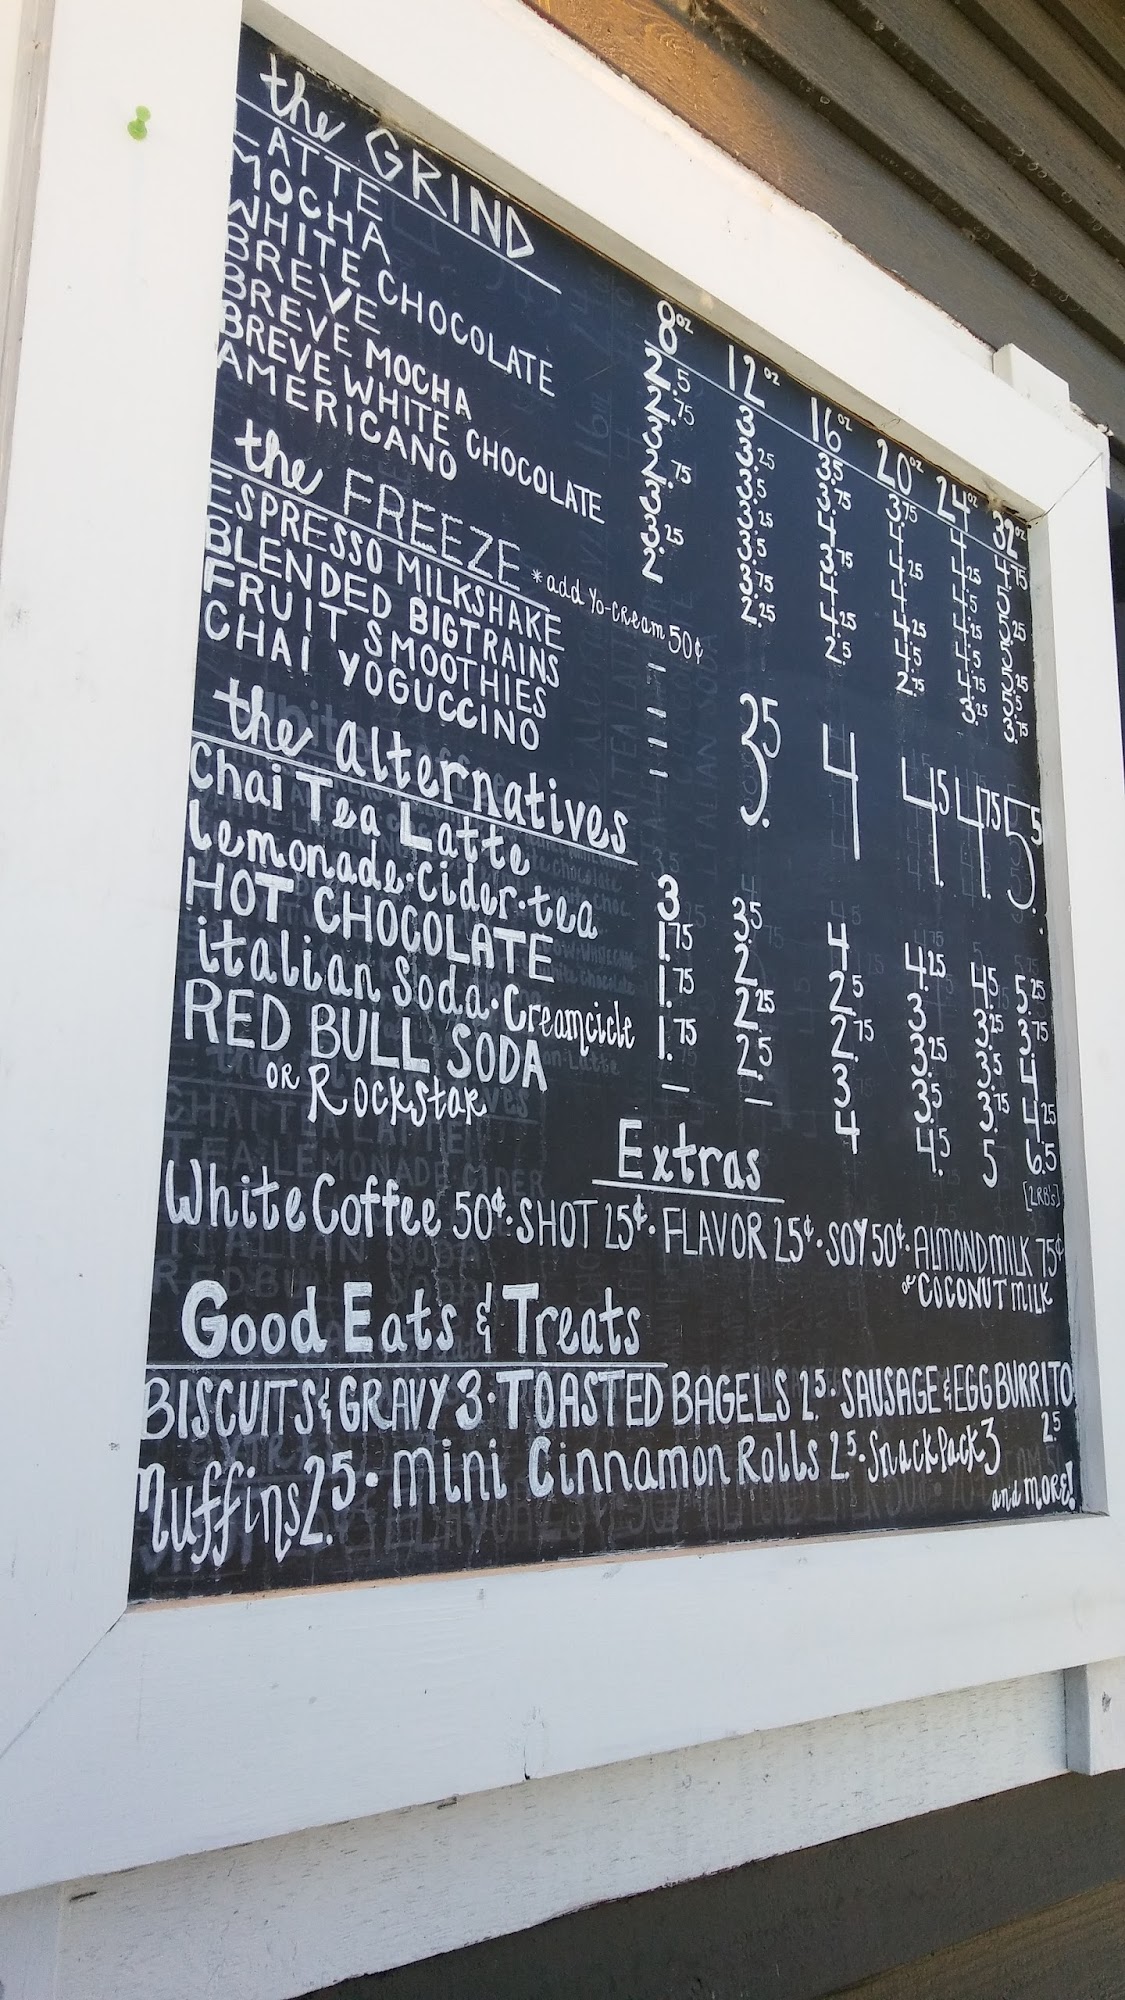 the GRIND 8oz 12oz 16oz 20oz 24oz 32oz
LATTE 2.5 3. 3.5 3.75 4. 4.75
MOCHA 2.75 3.25 3.75 4. 4.25 5.
WHITE CHOCOLATE 3. 3.5 4. 4.25 4.5 5.25
BREVE 2.75 3.25 3.75 4. 4.25 5.
BREVE MOCHA 3. 3.5 4. 4.25 4.5 5.25
BREVE WHITE CHOCOLATE 3.25 3.75 4.25 4.5 4.75 5.5
AMERICANO 2. 2.25 2.5 2.75 3.25 3.75
the FREEZE *add Yo-cream 50¢
ESPRESSO MILKSHAKE –
BLENDED BIGTRAINS –
FRUIT SMOOTHIES –
CHAI YOGUCCINO –
3.5 4 4.5 4.75 5.5
the alternatives
Chai Tea Latte 3 3.5 4 4.25 4.5 5.25
lemonade·cider·tea 1.75 2. 2.5 3. 3.25 3.75
HOT CHOCOLATE 1.75 2.25 2.75 3.25 3.5 4.
italian Soda·Creamcicle 1.75 2.5 3 3.5 3.75 4.25
RED BULL SODA – – 4 4.5 5 6.5
OR ROCKSTAR [2 RB's]
Extras
White Coffee 50¢·SHOT 25¢·FLAVOR 25¢·SOY 50¢·ALMOND MILK 75¢
or COCONUT MILK
Good Eats & Treats
BISCUITS & GRAVY 3·TOASTED BAGELS 2.5·SAUSAGE & EGG BURRITO 2.5
Muffins 2.5·mini Cinnamon Rolls 2.5·Snack Pack 3
and MORE!